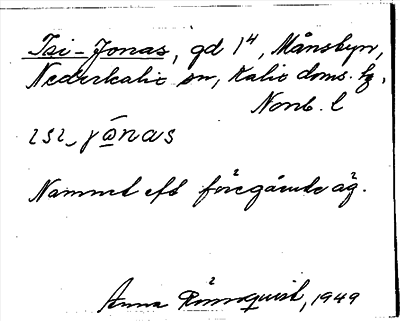 Isi-Jonas, gd 1⁴, Månsbyn,
Nederkalix sn, Kalix doms. hg,
Norrb. l
ɪsɪ-jǫnas
Namnet eft föregående äg.
Anna Rönnqvist, 1949